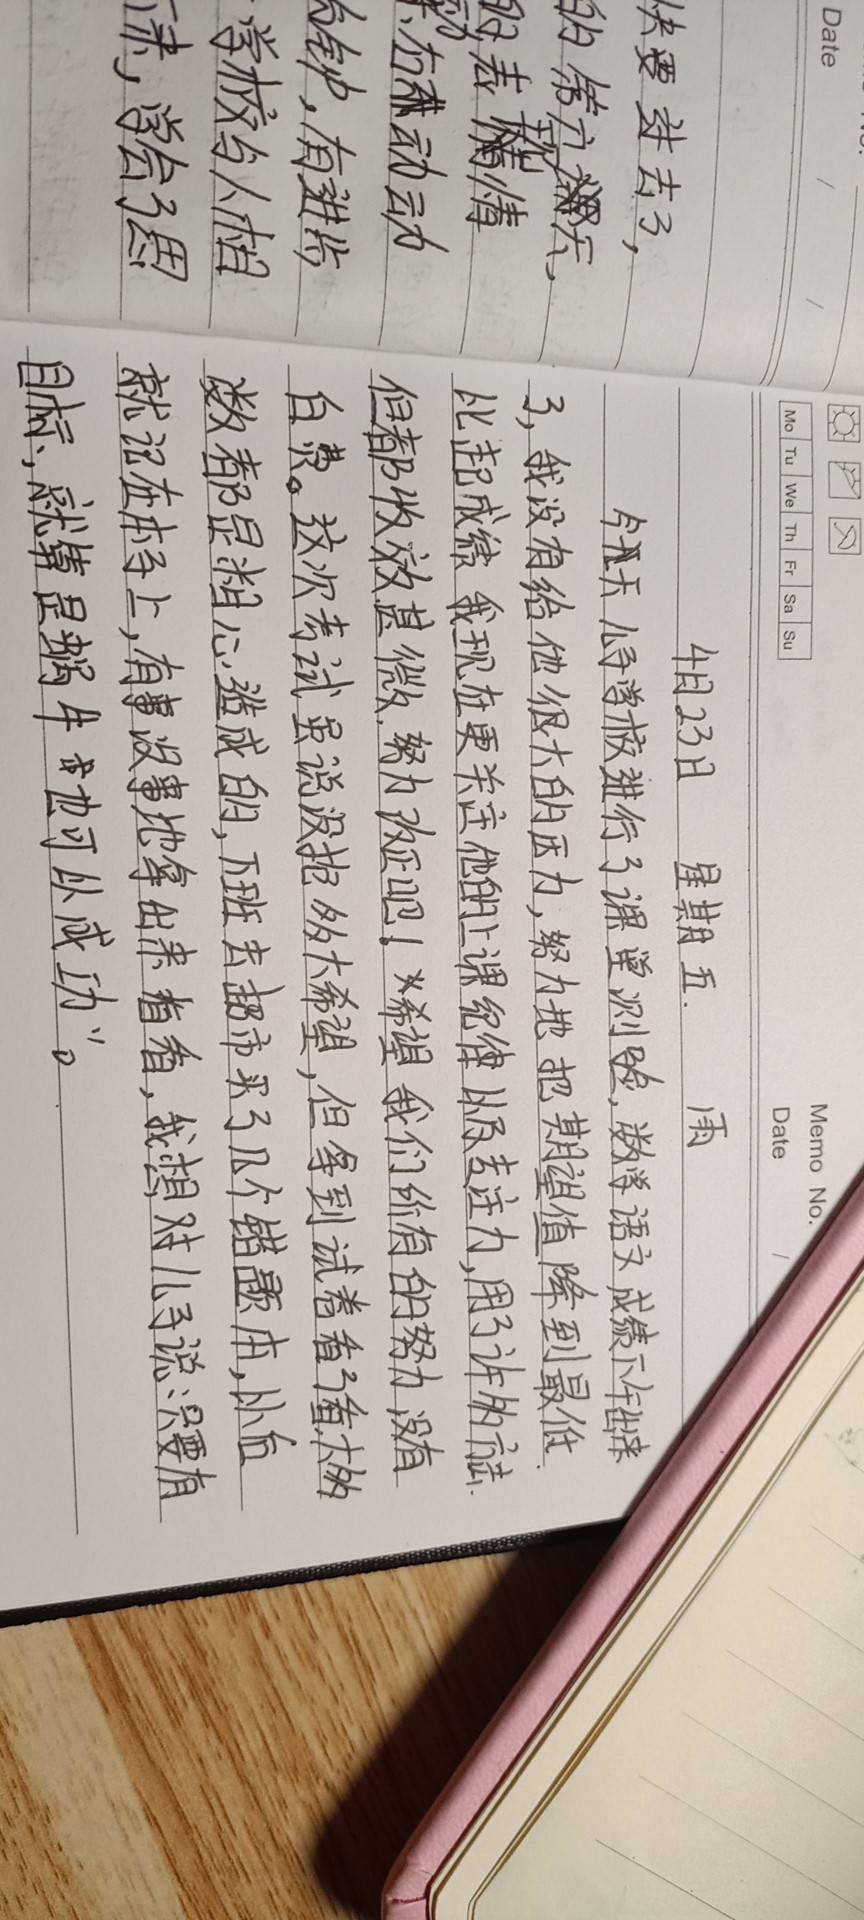 Date / /
快要过去了,
的第六天,
有进步
学校与人相
来,学会了思
Memo No.
Date /
Mo Tu We Th Fr Sa Su
4月23日 星期五. 雨
今天儿子学校进行了课堂测验,数学语文成绩下午出来
了,我没有给他很大的压力,努力地把期望值降到最低.
比起成绩我现在更关注他的上课纪律以及专注力,用了许多方法.
但都收效甚微.努力改正吧!希望我们所有的努力没有
白费。这次考试虽说没抱多大希望,但拿到试卷看了看,大多
数都是粗心造成的,下班去超市买了几个错题本,以后
就记在本子上,有事没事地拿出来看看,我想对儿子说:只要有
目标,就算是蜗牛也可以成功”。